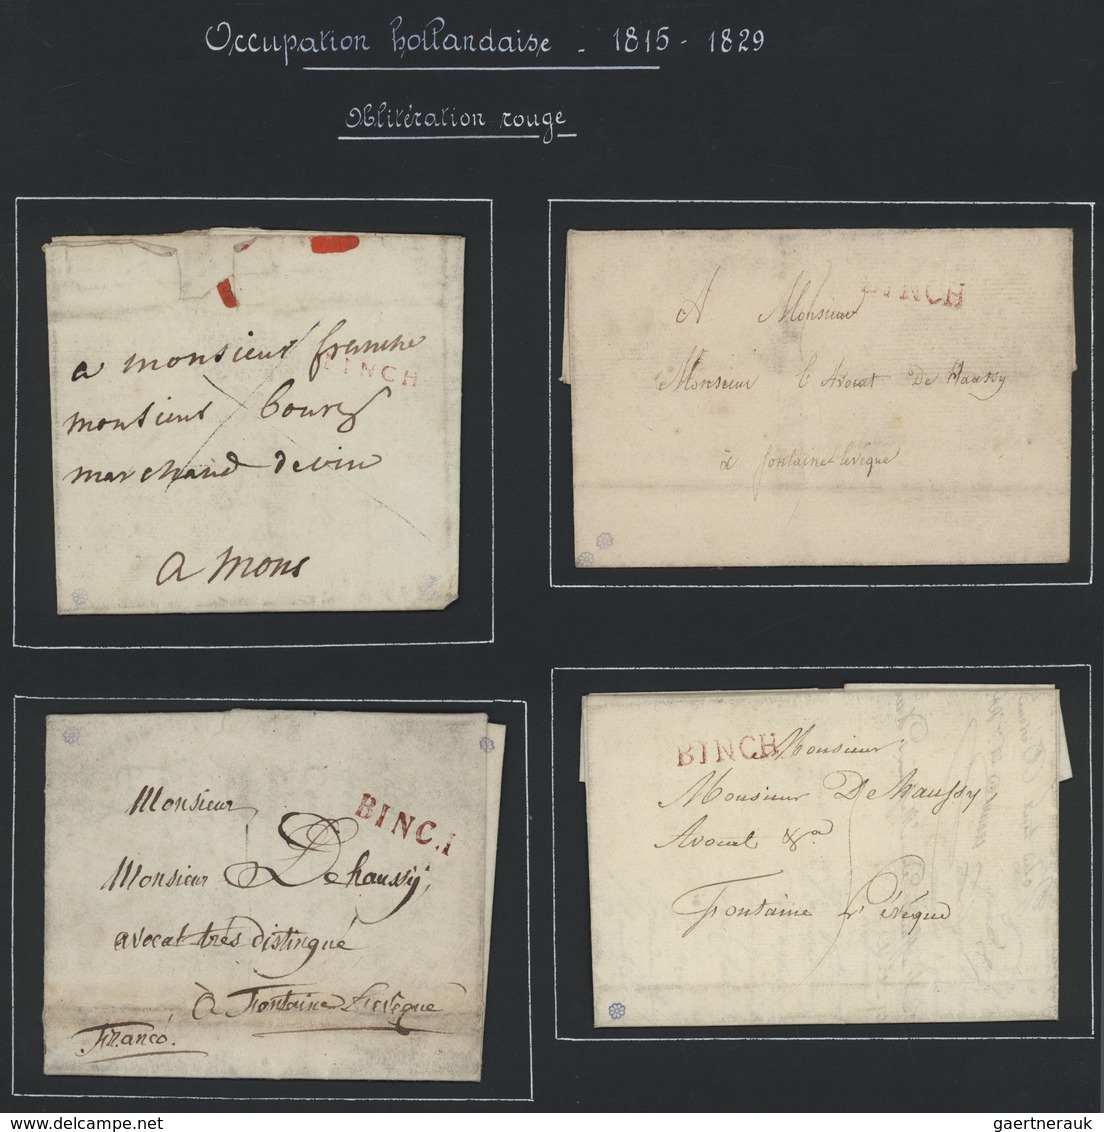 Occupation hollandaise - 1815 - 1829
Oblitération rouge
a monsieur franche
BINCH
monsieur
marchand de vin
a mons
BINCH
A Monsieur
Monsieur l'Avocat De Haussy
à fontaine leveque
Monsieur
BINC.I
Monsieur Dehaussy,
avocat très distingué
à Fontaine L'evêque
Franco.
BINCH
Monsieur
Monsieur De haussy,
Avocat &a
Fontaine L'évêque
gaertnerauk @ delcampe.net